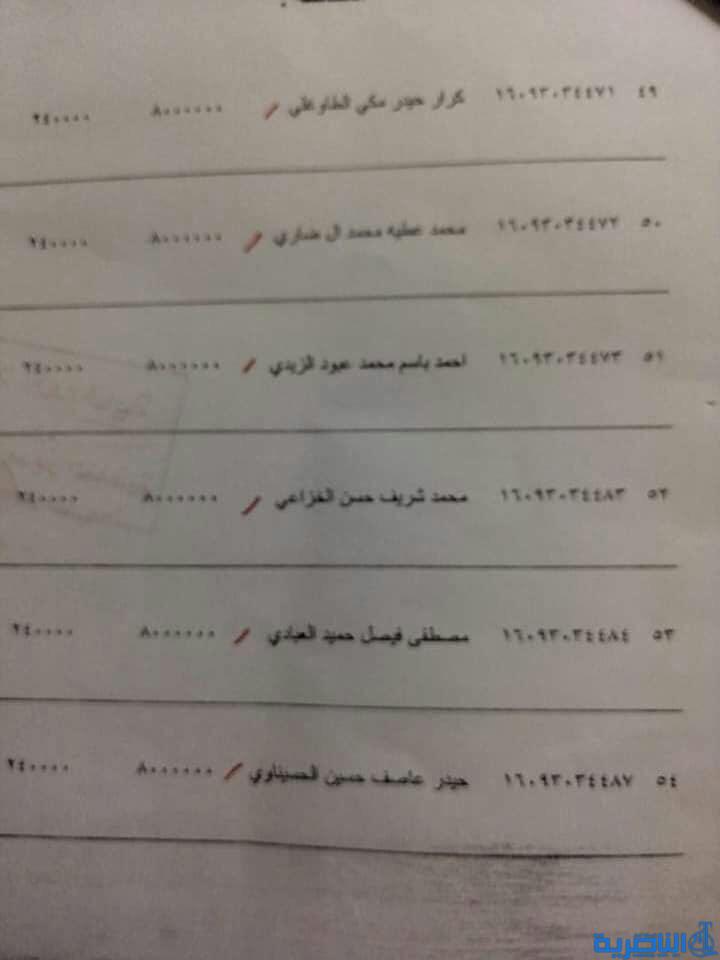 ٤٩ ١٦٠٩٣٠٣٤٤٧١ كرار حيدر مكي ٨٠٠٠٠٠٠ ٢٤٠٠٠٠
٥٠ ١٦٠٩٣٠٣٤٤٧٢ محمد عطيه محمد ال ضاري ٨٠٠٠٠٠٠ ٢٤٠٠٠٠
٥١ ١٦٠٩٣٠٣٤٤٧٣ احمد باسم محمد عبود الزيدي ٨٠٠٠٠٠٠ ٢٤٠٠٠٠
٥٢ ١٦٠٩٣٠٣٤٤٨٣ محمد شريف حسن الخزاعي ٨٠٠٠٠٠٠ ٢٤٠٠٠٠
٥٣ ١٦٠٩٣٠٣٤٤٨٤ مصطفى فيصل حميد العبادي ٨٠٠٠٠٠٠ ٢٤٠٠٠٠
٥٤ ١٦٠٩٣٠٣٤٤٨٧ حيدر عاصف حسين الحسيناوي ٨٠٠٠٠٠٠ ٢٤٠٠٠٠
الناصرية